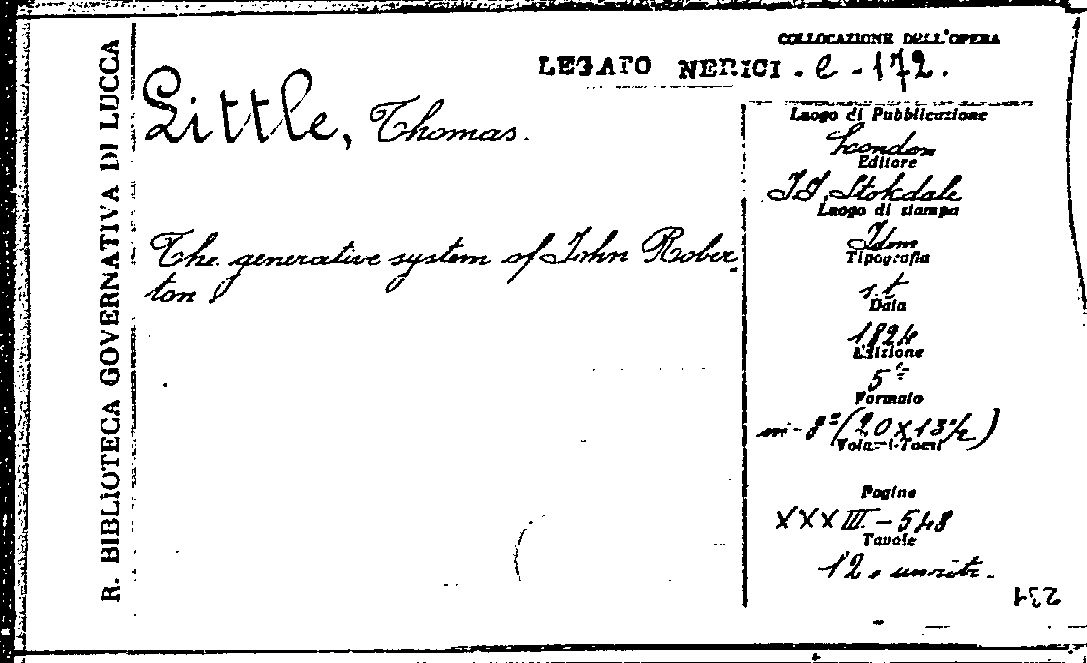 R. BIBLIOTECA GOVERNATIVA DI LUCCA
COLLOCAZIONE DELL'OPERA
LEGATO NERICI . e - 172.
Little, Thomas.
The generative system of John Rober
ton
Luogo di Pubblicazione
London
Editore
J.J. Stokdale
Luogo di stampa
Idem
Tipografia
s.t
Data
1824
Edizione
5ª
Formato
in-8º (20 X 13½)
Volumi-Tomi
Pagine
XXXIII - 548
Tavole
12
231